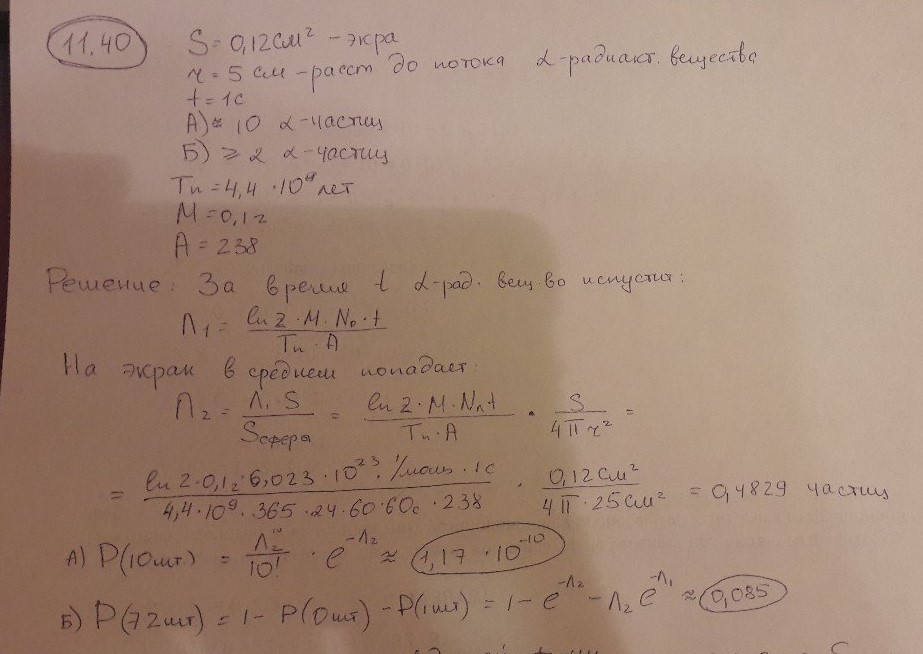 11.40
S = 0,12 см² - экра
r = 5 см - расст до потока α-радиакт. вещества
t = 1с
А) ≈ 10 α-частиц
Б) ≥ 2 α-частиц
Tп = 4,4 · 10⁹ лет
M = 0,1г
A = 238
Решение: За время t α-рад. вещ-во испустит:
Λ₁ = ln2 · M · N₀ · t / Tп · A
На экран в среднем попадает:
Λ₂ = Λ₁ S / Sсфера = ln2 · M · Nₐ t / Tп · A · S / 4πr² =
= ln2 · 0,1г · 6,023 · 10²³ · 1/моль · 1с / 4,4 · 10⁹ · 365 · 24 · 60 · 60с · 238 · 0,12см² / 4π · 25см² = 0,4829 частиц
А) P(10шт.) = Λ₂¹⁰ / 10! · e^(-Λ₂) ≈ 1,17 · 10⁻¹⁰
Б) P(72шт) = 1 - P(0шт) - P(1шт) = 1 - e^(-Λ₂) - Λ₂ e^(-Λ₁) ≈ 0,085